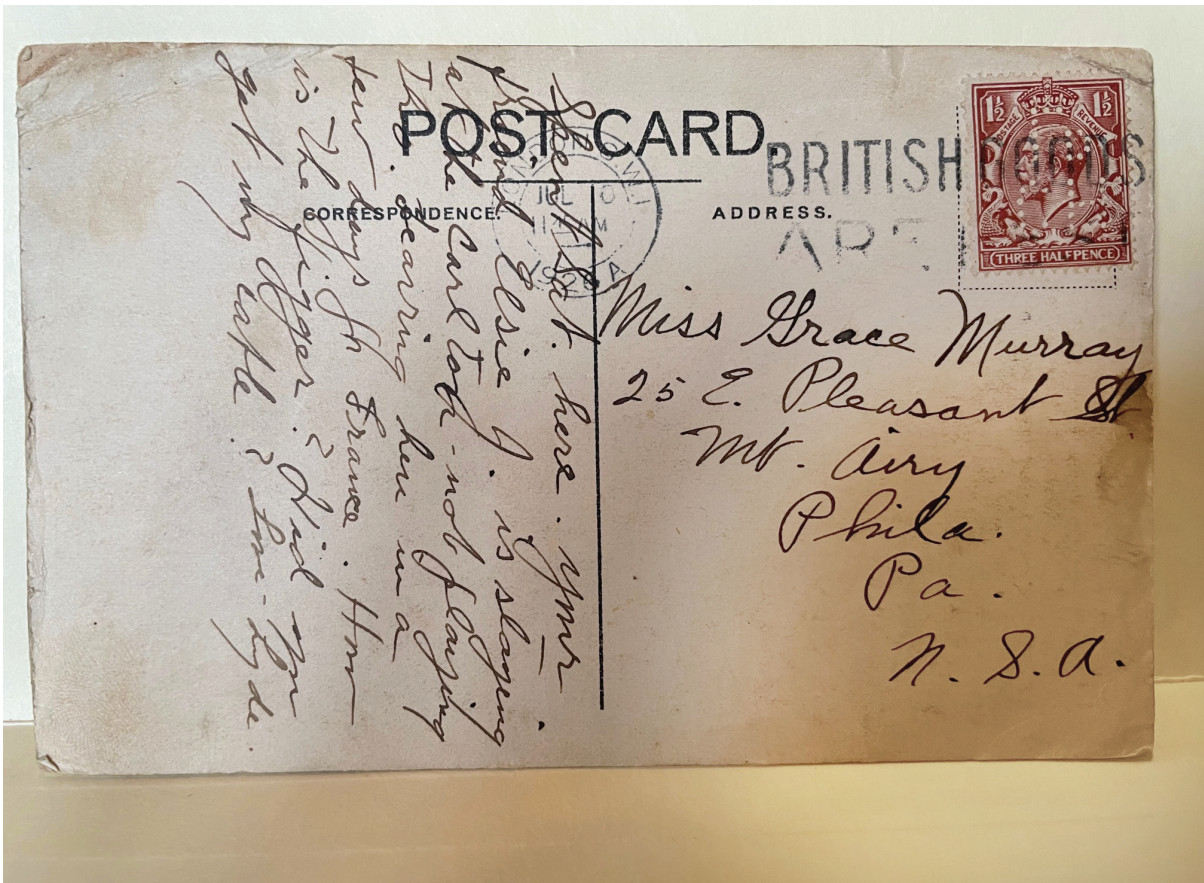 POST CARD.
CORRESPONDENCE.
ADDRESS.
JUL 0
11 AM
1928 A
BRITISH GOODS
ARE
1½ 1½
POSTAGE REVENUE
THREE HALFPENCE
Miss Grace Murray
25 E. Pleasant St.
Mt. Airy
Phila.
Pa.
U. S. A.
here. Your
friend Elsie J. is staying
at the Carlton - not playing
This. Leaving here in a
few days for France. How
is the finger? Did you
get my cable? Love - Lyde.